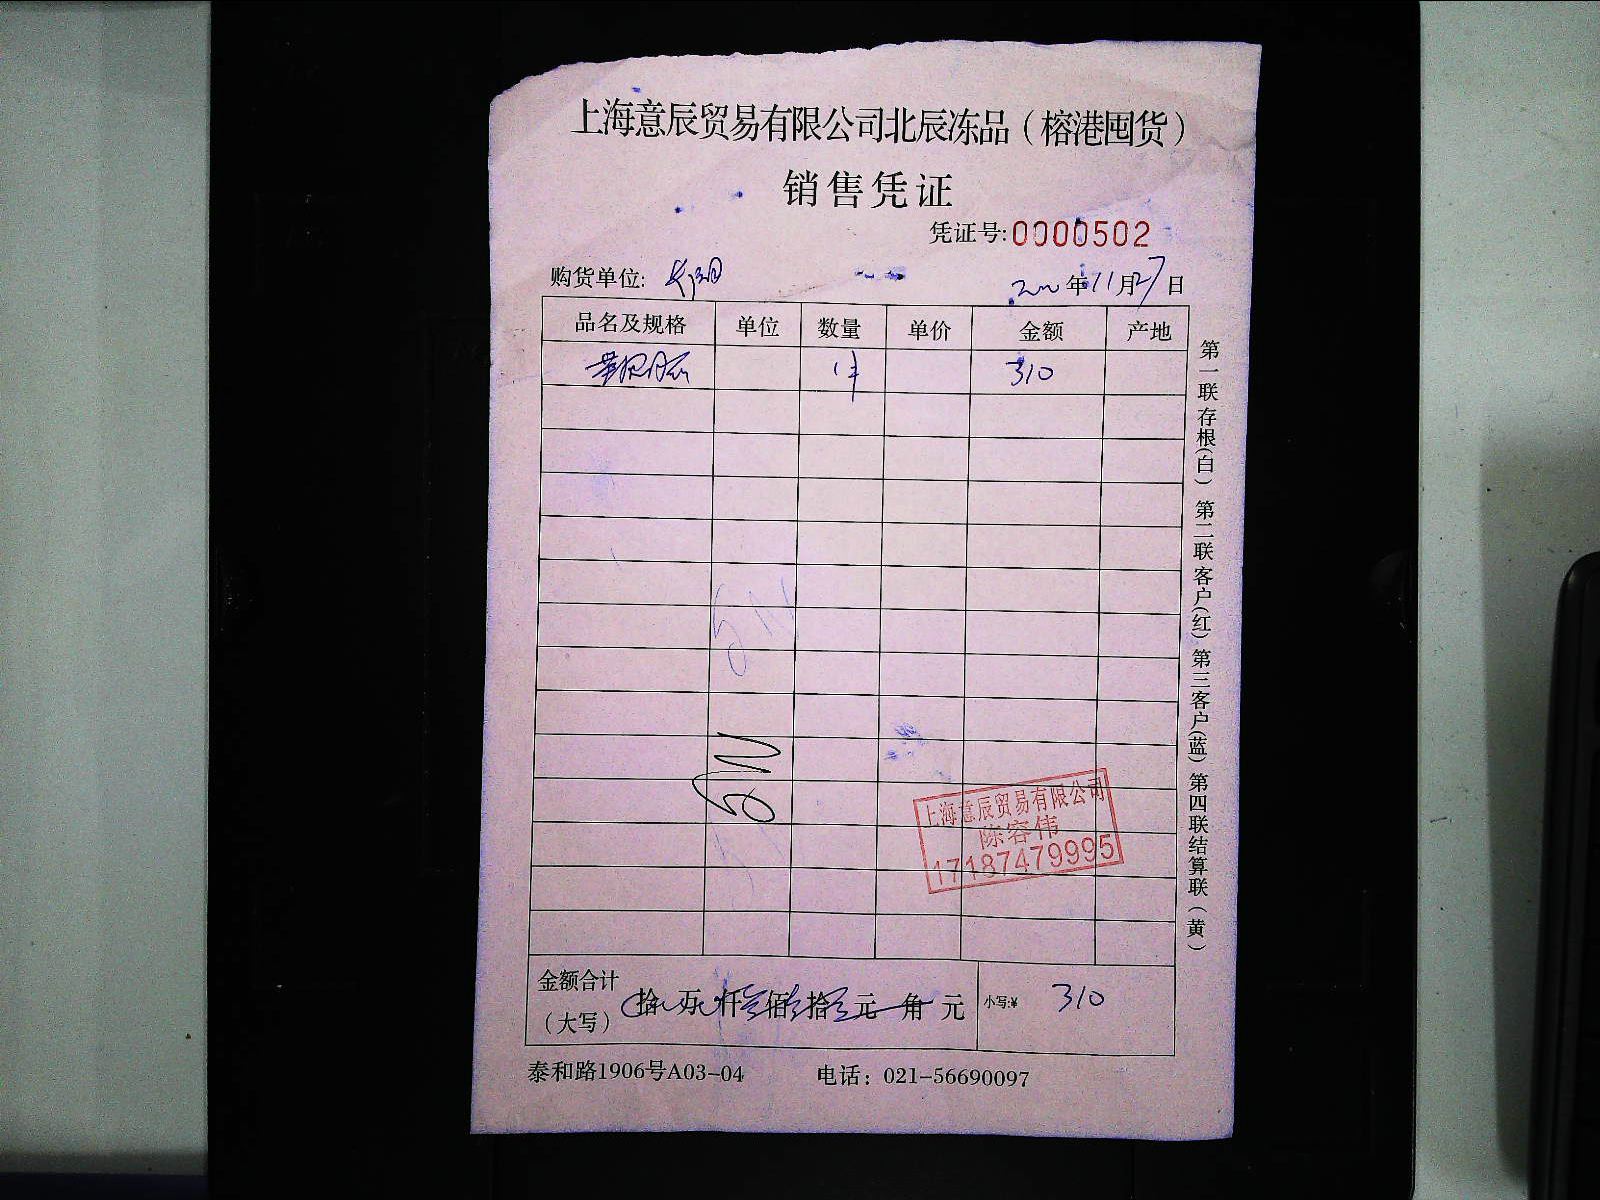 上海意辰贸易有限公司北辰冻品（榕港囤货）
销售凭证
凭证号:0000502
购货单位:
年11月27日
品名及规格 单位 数量 单价 金额 产地
1件 310
第一联存根(白) 第二联客户(红) 第三客户(蓝) 第四联结算联（黄）
上海意辰贸易有限公司
陈容伟
17187479995
金额合计
（大写） 拾 万 仟 佰 拾 元 角 元 小写:¥ 310
泰和路1906号A03-04 电话：021-56690097